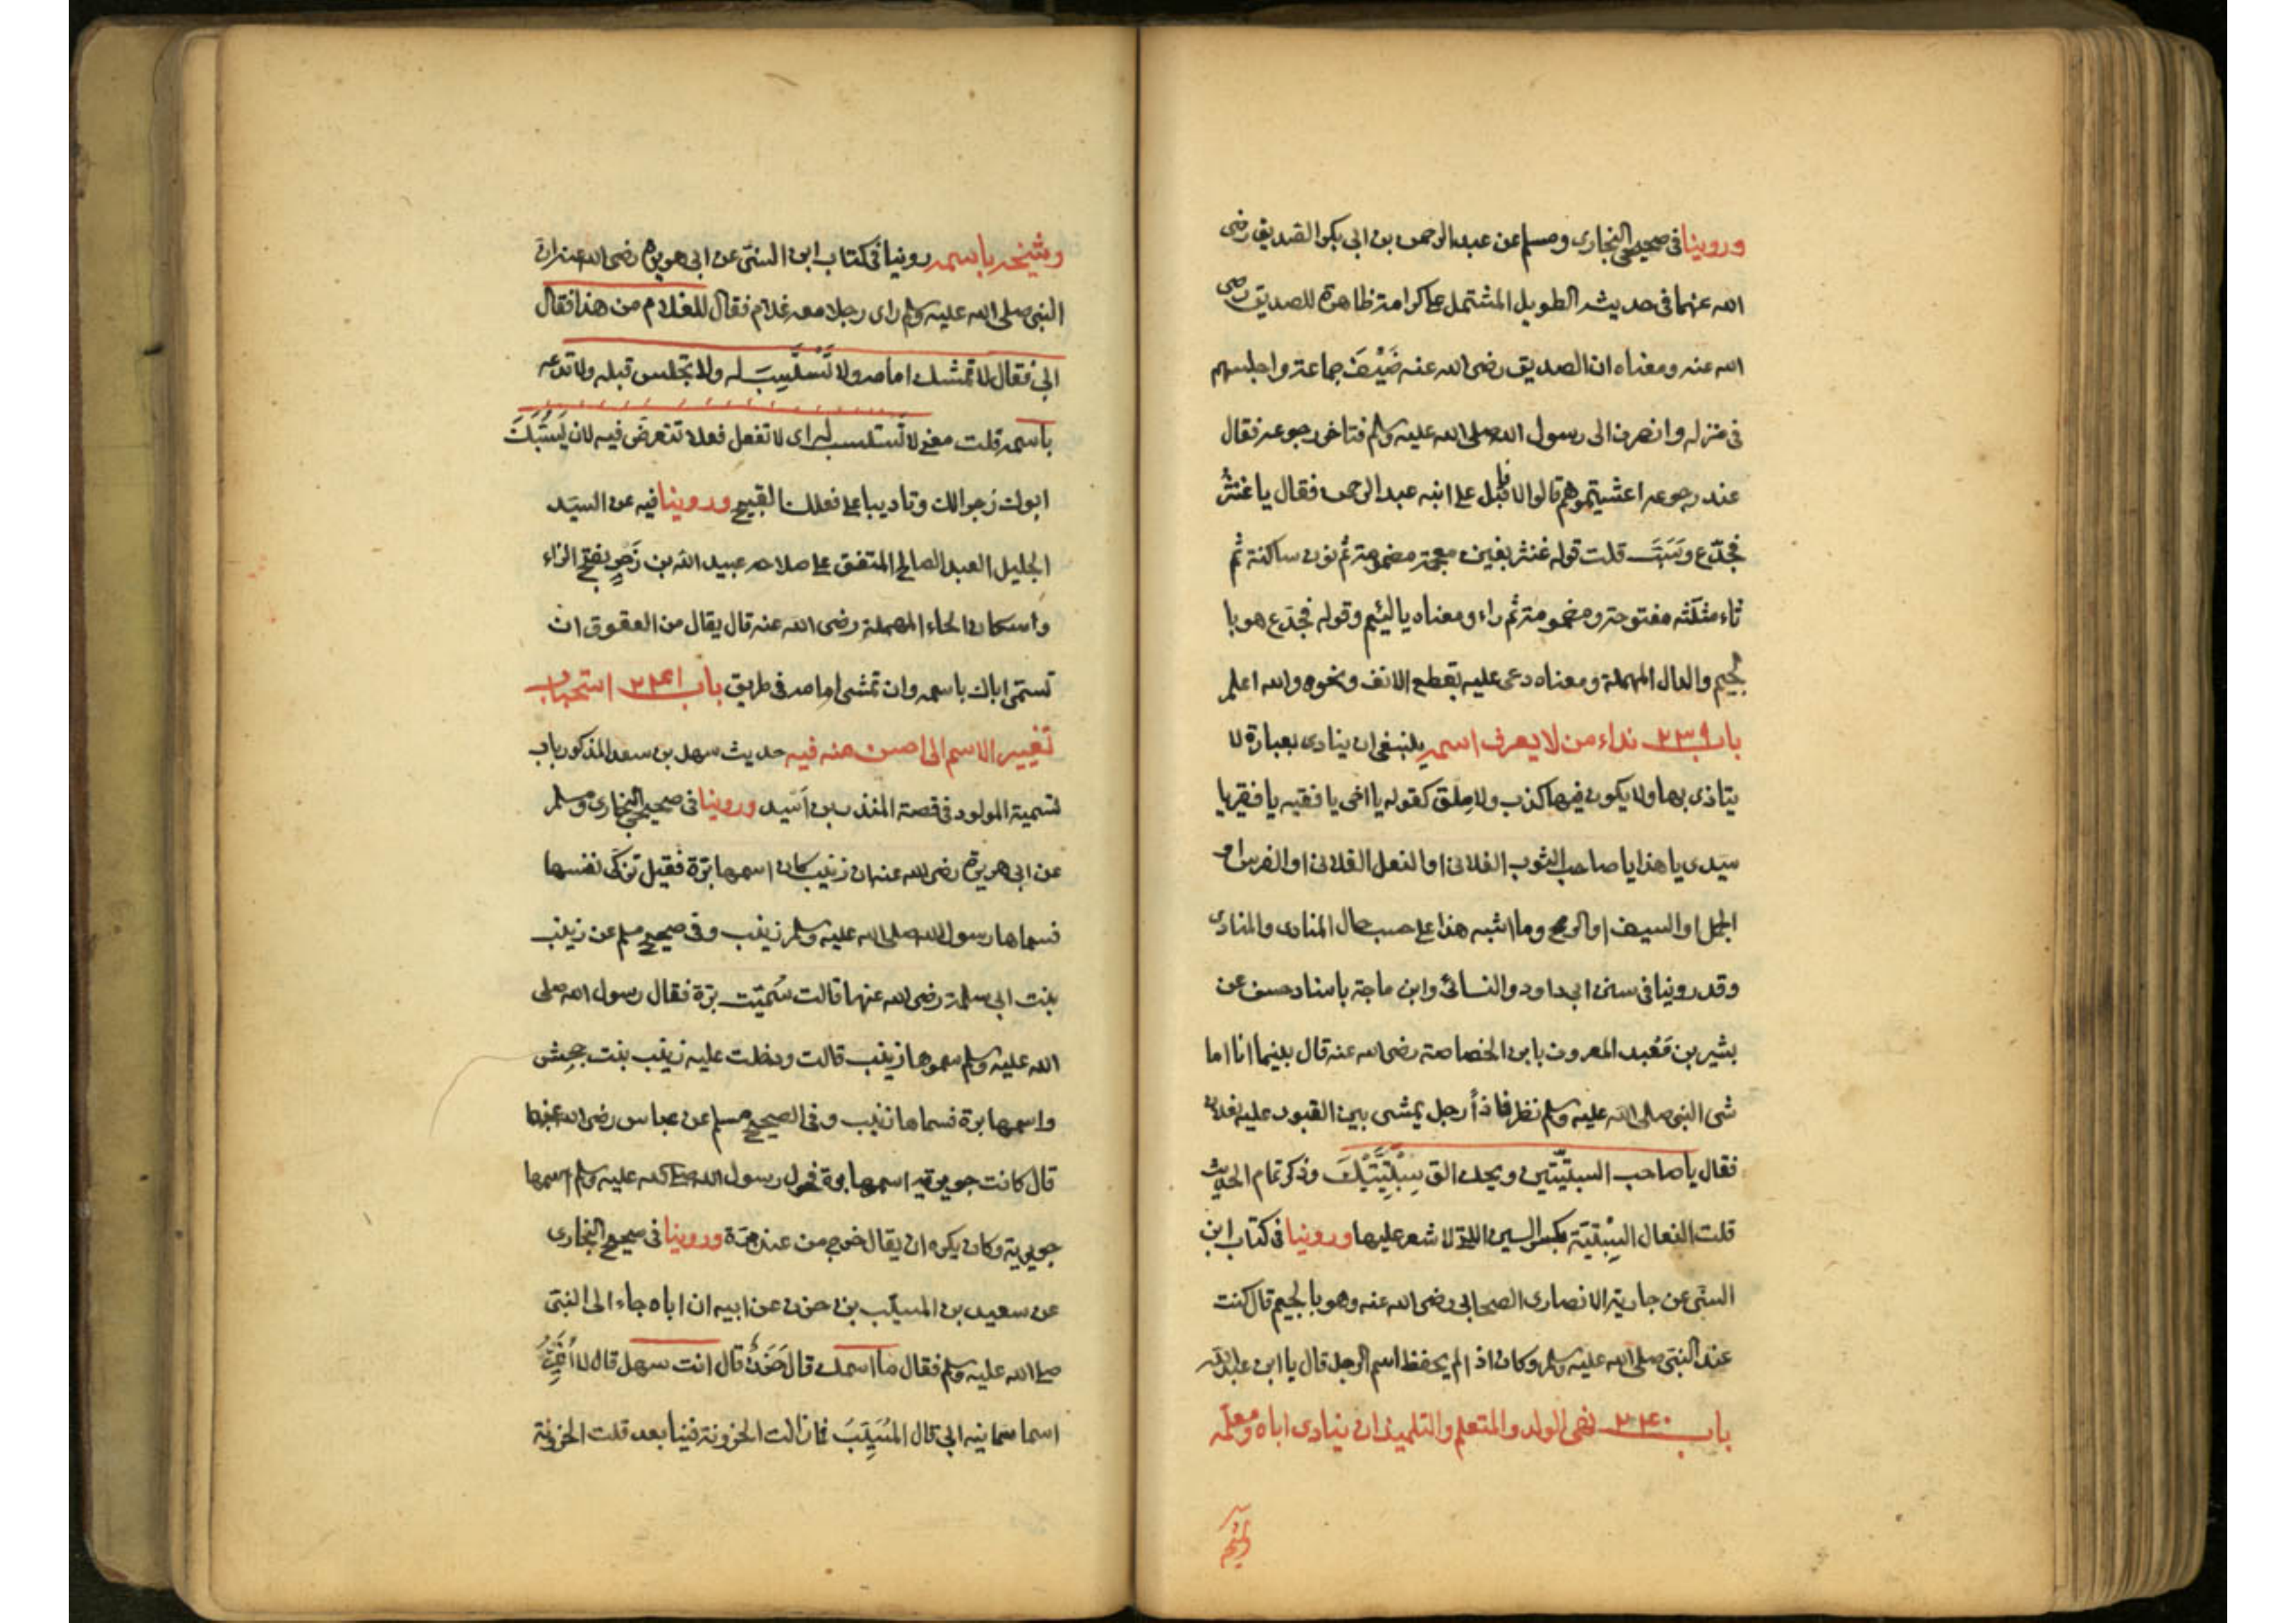 وروينا في صحيحي البخاري ومسلم عن عبد الرحمن بن ابي بكر الصديق رضى
الله عنهما في حديثه الطويل المشتمل على كرامة ظاهرة للصديق رضى
الله عنه ومعناه ان الصديق رضى الله عنه ضَيَّفَ جماعة واجلسهم
في منزله وانصرف الى رسول الله صلى الله عليه وسلم فتاخر رجوعه فقال
عند رجوعه اعشيتموهم قالوا لا فاقبل على ابنه عبد الرحمن فقال يا غنثر
فجدّع وسَبَّ قلت قوله غنثر بغين معجمة مضمومة ثم نون ساكنة ثم
ثاء مثلثة مفتوحة ومضمومة ثم راء ومعناه يا لئيم وقوله فجدّع هو با
لجيم والدال المهملة ومعناه دعى عليه بقطع الانف ونحوه والله اعلم
باب ٢٣٩ نداء من لا يعرف اسمه ينبغي ان ينادى بعبارة لا
يتاذى بها ولا يكون فيها كذب ولا ملق كقوله يا اخي يا فقيه يا فقير يا
سيدى يا هذا يا صاحب الثوب الفلاني او النعل الفلاني او الفرس او
الجمل او السيف او الرمح وما اشبه هذا على حسب حال المنادى والمنادى
وقد روينا في سنن ابي داود والنسائى وابن ماجة باسناد حسن عن
بشير بن مَعْبد المعروف بابن الخصاصة رضى الله عنه قال بينما انا اما
شى النبي صلى الله عليه وسلم نظر فاذا رجل يمشى بين القبور عليه نعلان
فقال يا صاحب السبتيّتين ويحك الق سِبْتِيَّتَيْكَ وذكر تمام الحديث
قلت النعال السِبْتيّة بكسر السين اللتي لا شعر عليها وروينا في كتاب ابن
السنّى عن جارية الانصارى الصحابي رضى الله عنه وهو بالجيم قال كنت
عند النبي صلى الله عليه وسلم وكان اذ الم يحفظ اسم الرجل قال يا ابن عبد الله
باب ٢٤٠ نهى الولد والمتعلم والتلميذ ان ينادى اباه ومعلمه
وشيخه باسمه روينا في كتاب ابن السنّى عن ابي هريرة رضى الله عنه ان
النبي صلى الله عليه وسلم راى رجلا معه غلام فقال للغلام من هذا فقال
ابي فقال لا تمشى امامه ولا تَسْتَسِبَّ له ولا تجلس قبله ولا تدعه
باسمه قلت معنى لا تستسب له اى لا تفعل فعلا تتعرض فيه لان يَسُبَّكَ
ابوك زجرا لك وتاديبا على فعلك القبيح وروينا فيه عن السيّد
الجليل العبد الصالح المتفق على صلاحه عبيد الله بن زَحْرٍ بفتح الزاء
واسكان الحاء المهملة رضى الله عنه قال يقال من العقوق ان
تسمّى اباك باسمه وان تمشى امامه في طريق باب ٢٤١ استحباب
تغيير الاسم الى احسن منه فيه حديث سهل بن سعد المذكور باب
تسمية المولود في قصة المنذر بن اَسيد وروينا في صحيحي البخارى ومسلم
عن ابي هريرة رضى الله عنه ان زينب كان اسمها برّة فقيل تزكّى نفسها
فسماها رسول الله صلى الله عليه وسلم زينب وفي صحيح مسلم عن زينب
بنت ابي سلمة رضى الله عنها قالت سُمّيت برّة فقال رسول الله صلى
الله عليه وسلم سموها زينب قالت ودخلت عليه زينب بنت جحش
واسمها برة فسماها زينب وفي الصحيح مسلم عن عباس رضى الله عنهما
قال كانت جويرية اسمها برة فحول رسول الله صلى الله عليه وسلم اسمها
جويرية وكان يكره ان يقال خرج من عند برّة وروينا في صحيح البخارى
عن سعيد بن المسيّب بن حزن عن ابيه ان اباه جاء الى النبي
صلى الله عليه وسلم فقال ما اسمك قال حَزَنٌ قال انت سهل قال لا اُغَيِّرُ
اسما سمانيه ابي قال المُسَيِّبَ فما زالت الحزونة فينا بعد قلت الحزونة